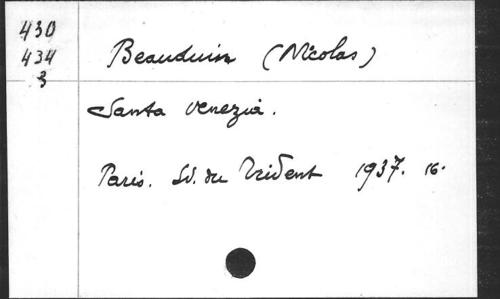 430
434
3
Beauduin (Nicolas)
Santa Venezia.
Paris. Ed. du Trident 1937. 16.